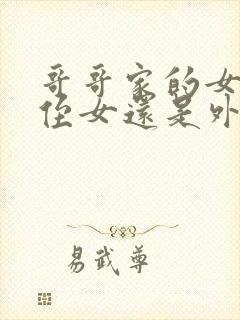 哥哥家的女
侄女還是外
易武尊